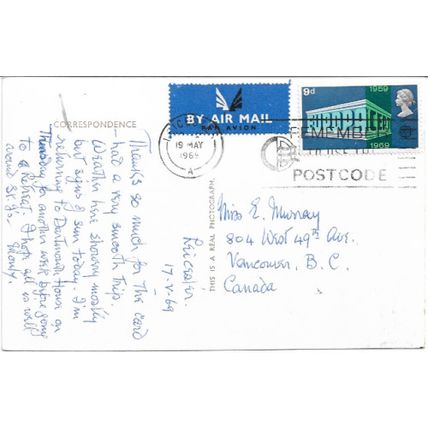 CORRESPONDENCE
BY AIR MAIL
PAR AVION
19 MAY
1969
A
9d
1959
1969
REMEMBER
POSTCODE
THIS IS A REAL PHOTOGRAPH.
Leicester.
17.V.69
Thanks so much for the card
– had a very smooth trip.
Weather here showery mostly
but signs of sun today. I'm
returning to Dartmouth House on
Thursday for another week before going
to a Retreat. I hope all is well
around St. J's.
Miss E. Murray
804 West 49th Ave.
Vancouver, B. C.
Canada